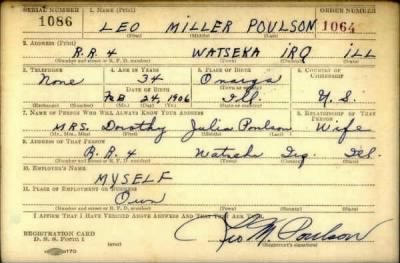 SERIAL NUMBER 1. NAME (Print) ORDER NUMBER
1086 LEO MILLER POULSON 1064
(First) (Middle) (Last)
2. ADDRESS (Print)
R.R.4 WATSEKA IRQ ILL
(Number and street or R. F. D. number) (Town) (County) (State)
3. TELEPHONE 4. AGE IN YEARS 5. PLACE OF BIRTH 6. COUNTRY OF CITIZENSHIP
None 34 Onarga
DATE OF BIRTH (Town or county)
FEB 24, 1906 Ill. U.S.
(Exchange) (Number) (Mo.) (Day) (Yr.) (State or country)
7. NAME OF PERSON WHO WILL ALWAYS KNOW YOUR ADDRESS 8. RELATIONSHIP OF THAT PERSON
MRS. Dorothy Julia Poulson Wife
(Mr., Mrs., Miss) (First) (Middle) (Last)
9. ADDRESS OF THAT PERSON
R.R.4 Watseka Irq. Ill.
(Number and street or R. F. D. number) (Town) (County) (State)
10. EMPLOYER'S NAME
MYSELF
11. PLACE OF EMPLOYMENT OR BUSINESS
Own
(Number and street or R. F. D. number) (Town) (County) (State)
I AFFIRM THAT I HAVE VERIFIED ABOVE ANSWERS AND THAT THEY ARE TRUE.
REGISTRATION CARD
D. S. S. Form 1
Leo M. Poulson
(Registrant's signature)